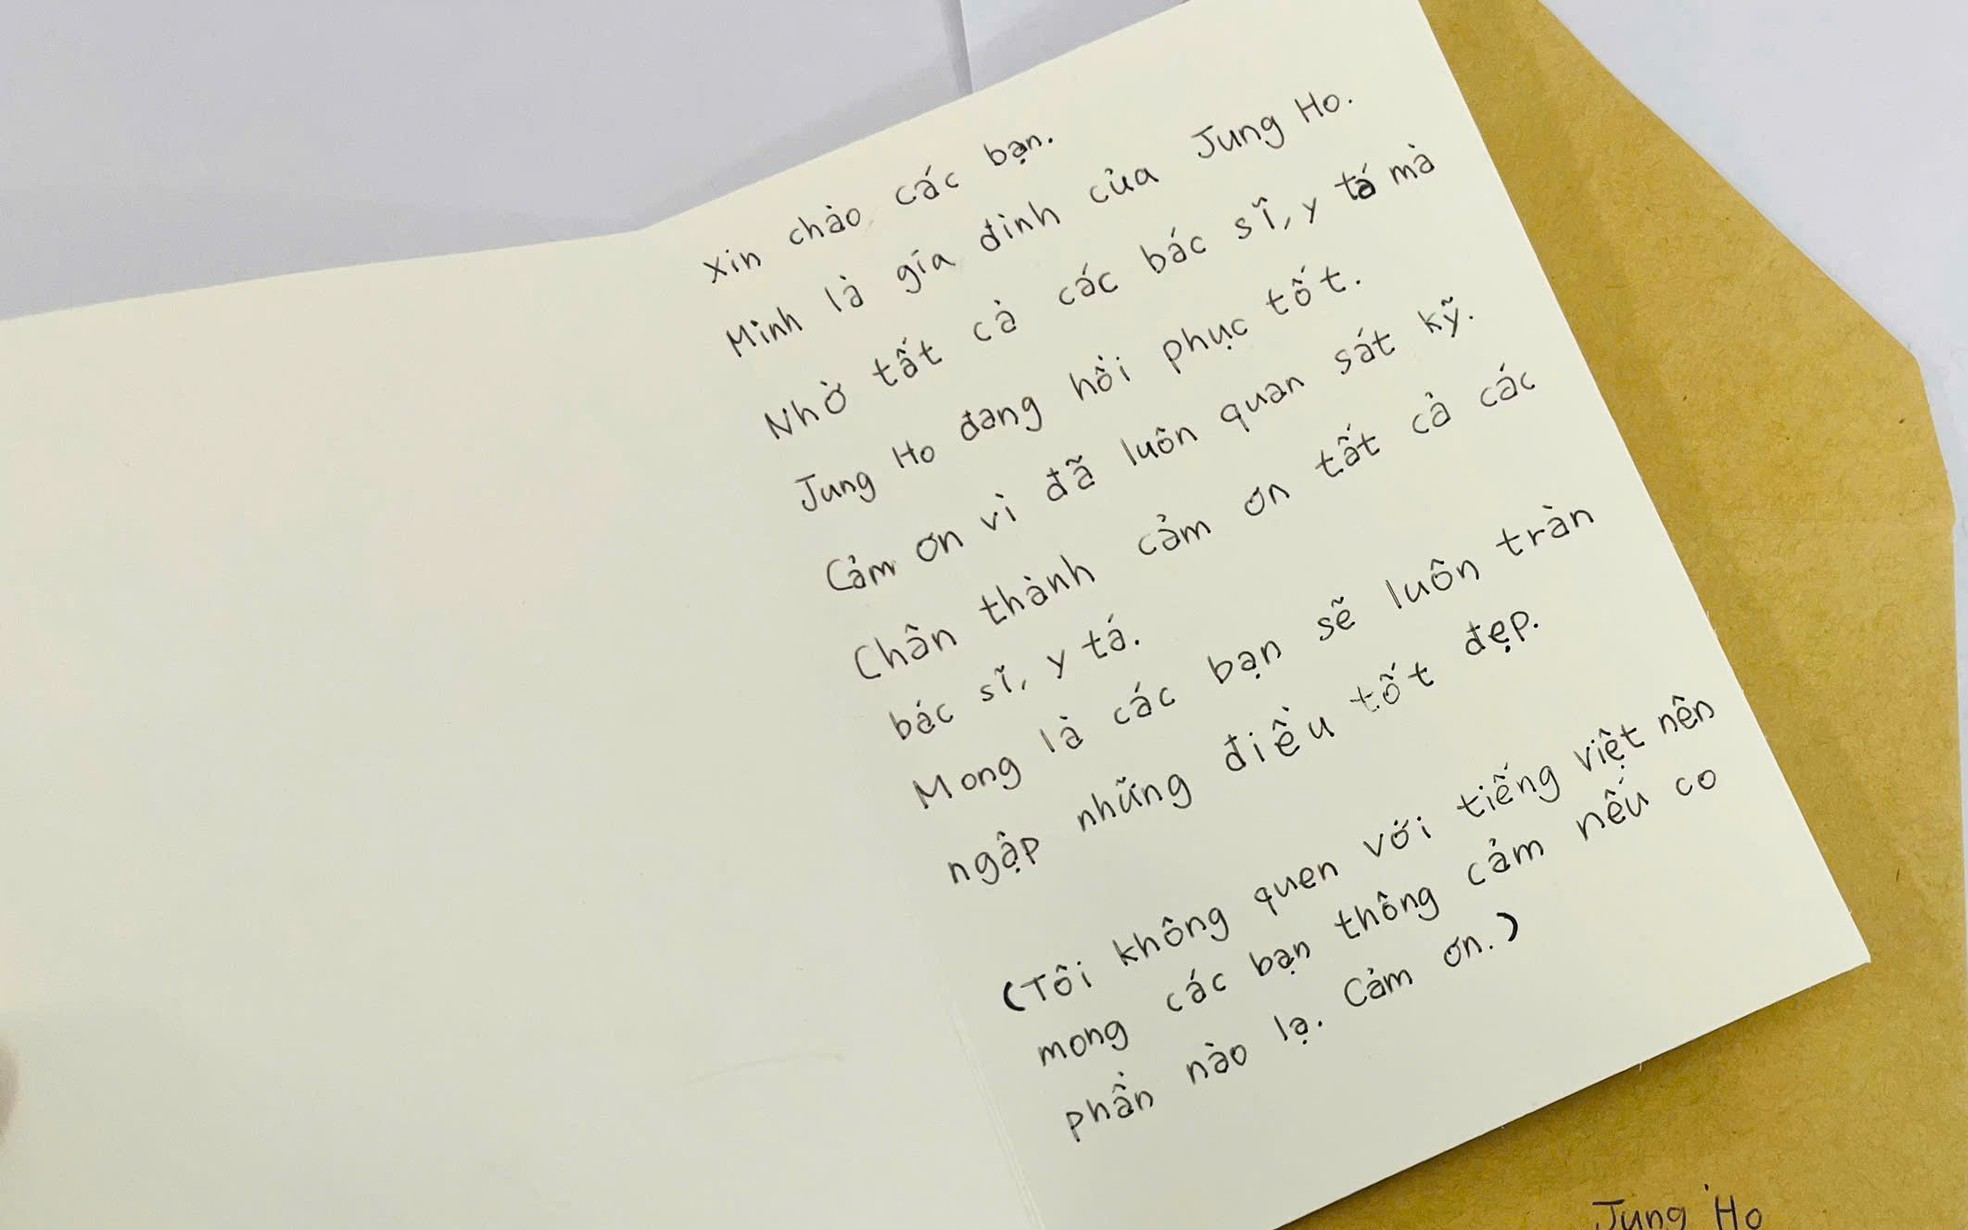 Xin chào các bạn.
Mình là gía đình của Jung Ho.
Nhờ tất cả các bác sĩ, y tá mà
Jung Ho đang hồi phục tốt.
Cảm ơn vì đã luôn quan sát kỹ.
Chân thành cảm ơn tất cả các
bác sĩ, y tá.
Mong là các bạn sẽ luôn tràn
ngập những điều tốt đẹp.
(Tôi không quen với tiếng việt nên
mong các bạn thông cảm nếu co
phần nào lạ. Cảm ơn.)
Jung Ho